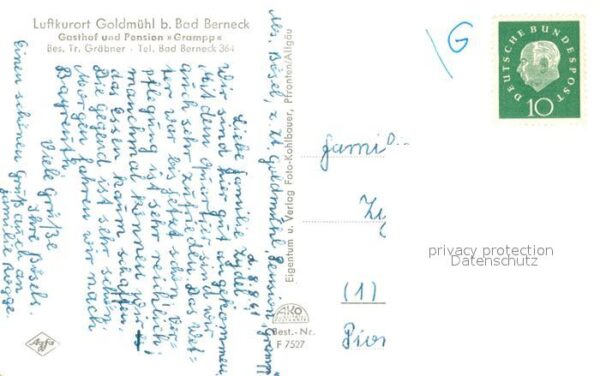 Luftkurort Goldmühl b. Bad Berneck
Gasthof und Pension »Grampp«
Bes. Tr. Gräbner - Tel. Bad Berneck 364
Abs. Bösel, z. Zt. Goldmühl, Pension Grampp
d. 8.8.61
Liebe Familie
Wir sind hier gut angekommen.
Mit dem Quartier sind wir
auch sehr zufrieden. Das Wet-
ter war bis jetzt schön. Ver-
pflegung ist sehr reichlich,
manchmal können wir
das Essen kaum schaffen.
Die Gegend ist sehr schön.
Morgen fahren wir nach
Bayreuth.
Viele Grüße
Ihre Bösels.
Einen schönen Gruß auch an
Familie Rogge
Eigentum u. Verlag Foto-Kohlbauer, Pfronten/Allgäu
AKO
Best.-Nr.
F 7527
Agfa
G
DEUTSCHE BUNDESPOST
10
Fami
(1)
privacy protection
Datenschutz